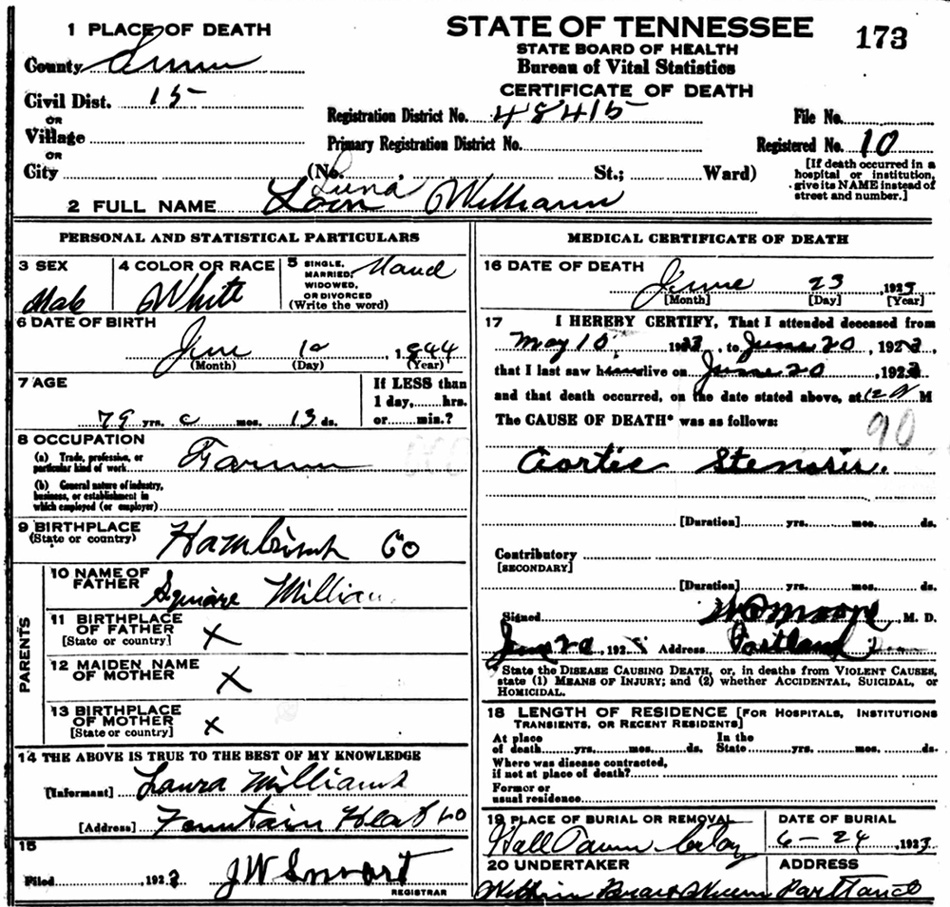 STATE OF TENNESSEE
STATE BOARD OF HEALTH
Bureau of Vital Statistics
CERTIFICATE OF DEATH
173
1 PLACE OF DEATH
County
Civil Dist. 15
OR
Village
OR
City (No. St.; Ward)
Registration District No. 48415
Primary Registration District No.
File No.
Registered No. 10
[If death occurred in a
hospital or institution,
give its NAME instead of
street and number.]
Luna
2 FULL NAME
PERSONAL AND STATISTICAL PARTICULARS
3 SEX
Male
4 COLOR OR RACE
White
5 SINGLE,
MARRIED,
WIDOWED,
OR DIVORCED
(Write the word)
6 DATE OF BIRTH
June 10, 1844
(Month) (Day) (Year)
7 AGE
79 yrs. 0 mos. 13 ds.
If LESS than
1 day, hrs.
or min.?
8 OCCUPATION
(a) Trade, profession, or
particular kind of work
(b) General nature of industry,
business, or establishment in
which employed (or employer)
9 BIRTHPLACE
(State or country)
Co
PARENTS
10 NAME OF
FATHER
Square
11 BIRTHPLACE
OF FATHER
[State or country]
X
12 MAIDEN NAME
OF MOTHER
X
13 BIRTHPLACE
OF MOTHER
[State or country]
X
14 THE ABOVE IS TRUE TO THE BEST OF MY KNOWLEDGE
[Informant] Laura Williams
[Address] Fountain Head
15
Filed , 1923
J W
REGISTRAR
MEDICAL CERTIFICATE OF DEATH
16 DATE OF DEATH
June 23 1923
[Month] [Day] [Year]
17 I HEREBY CERTIFY, That I attended deceased from
May 10, 1923, to June 20, 1923,
that I last saw alive on June 20, 1923
and that death occurred, on the date stated above, at M
The CAUSE OF DEATH* was as follows:
90
Aortic Stenosis.
[Duration] yrs. mos. ds.
Contributory
[SECONDARY]
[Duration] yrs. mos. ds.
Signed Moore M. D.
June 20, 192 Address Portland
*State the DISEASE CAUSING DEATH, or, in deaths from VIOLENT CAUSES,
state (1) MEANS OF INJURY; and (2) whether ACCIDENTAL, SUICIDAL, or
HOMICIDAL.
18 LENGTH OF RESIDENCE [FOR HOSPITALS, INSTITUTIONS
TRANSIENTS, OR RECENT RESIDENTS]
At place
of death yrs. mos. ds.
In the
State yrs. mos. ds.
Where was disease contracted,
if not at place of death?
Former or
usual residence
19 PLACE OF BURIAL OR REMOVAL
DATE OF BURIAL
6-24, 1923
20 UNDERTAKER
ADDRESS
Portland